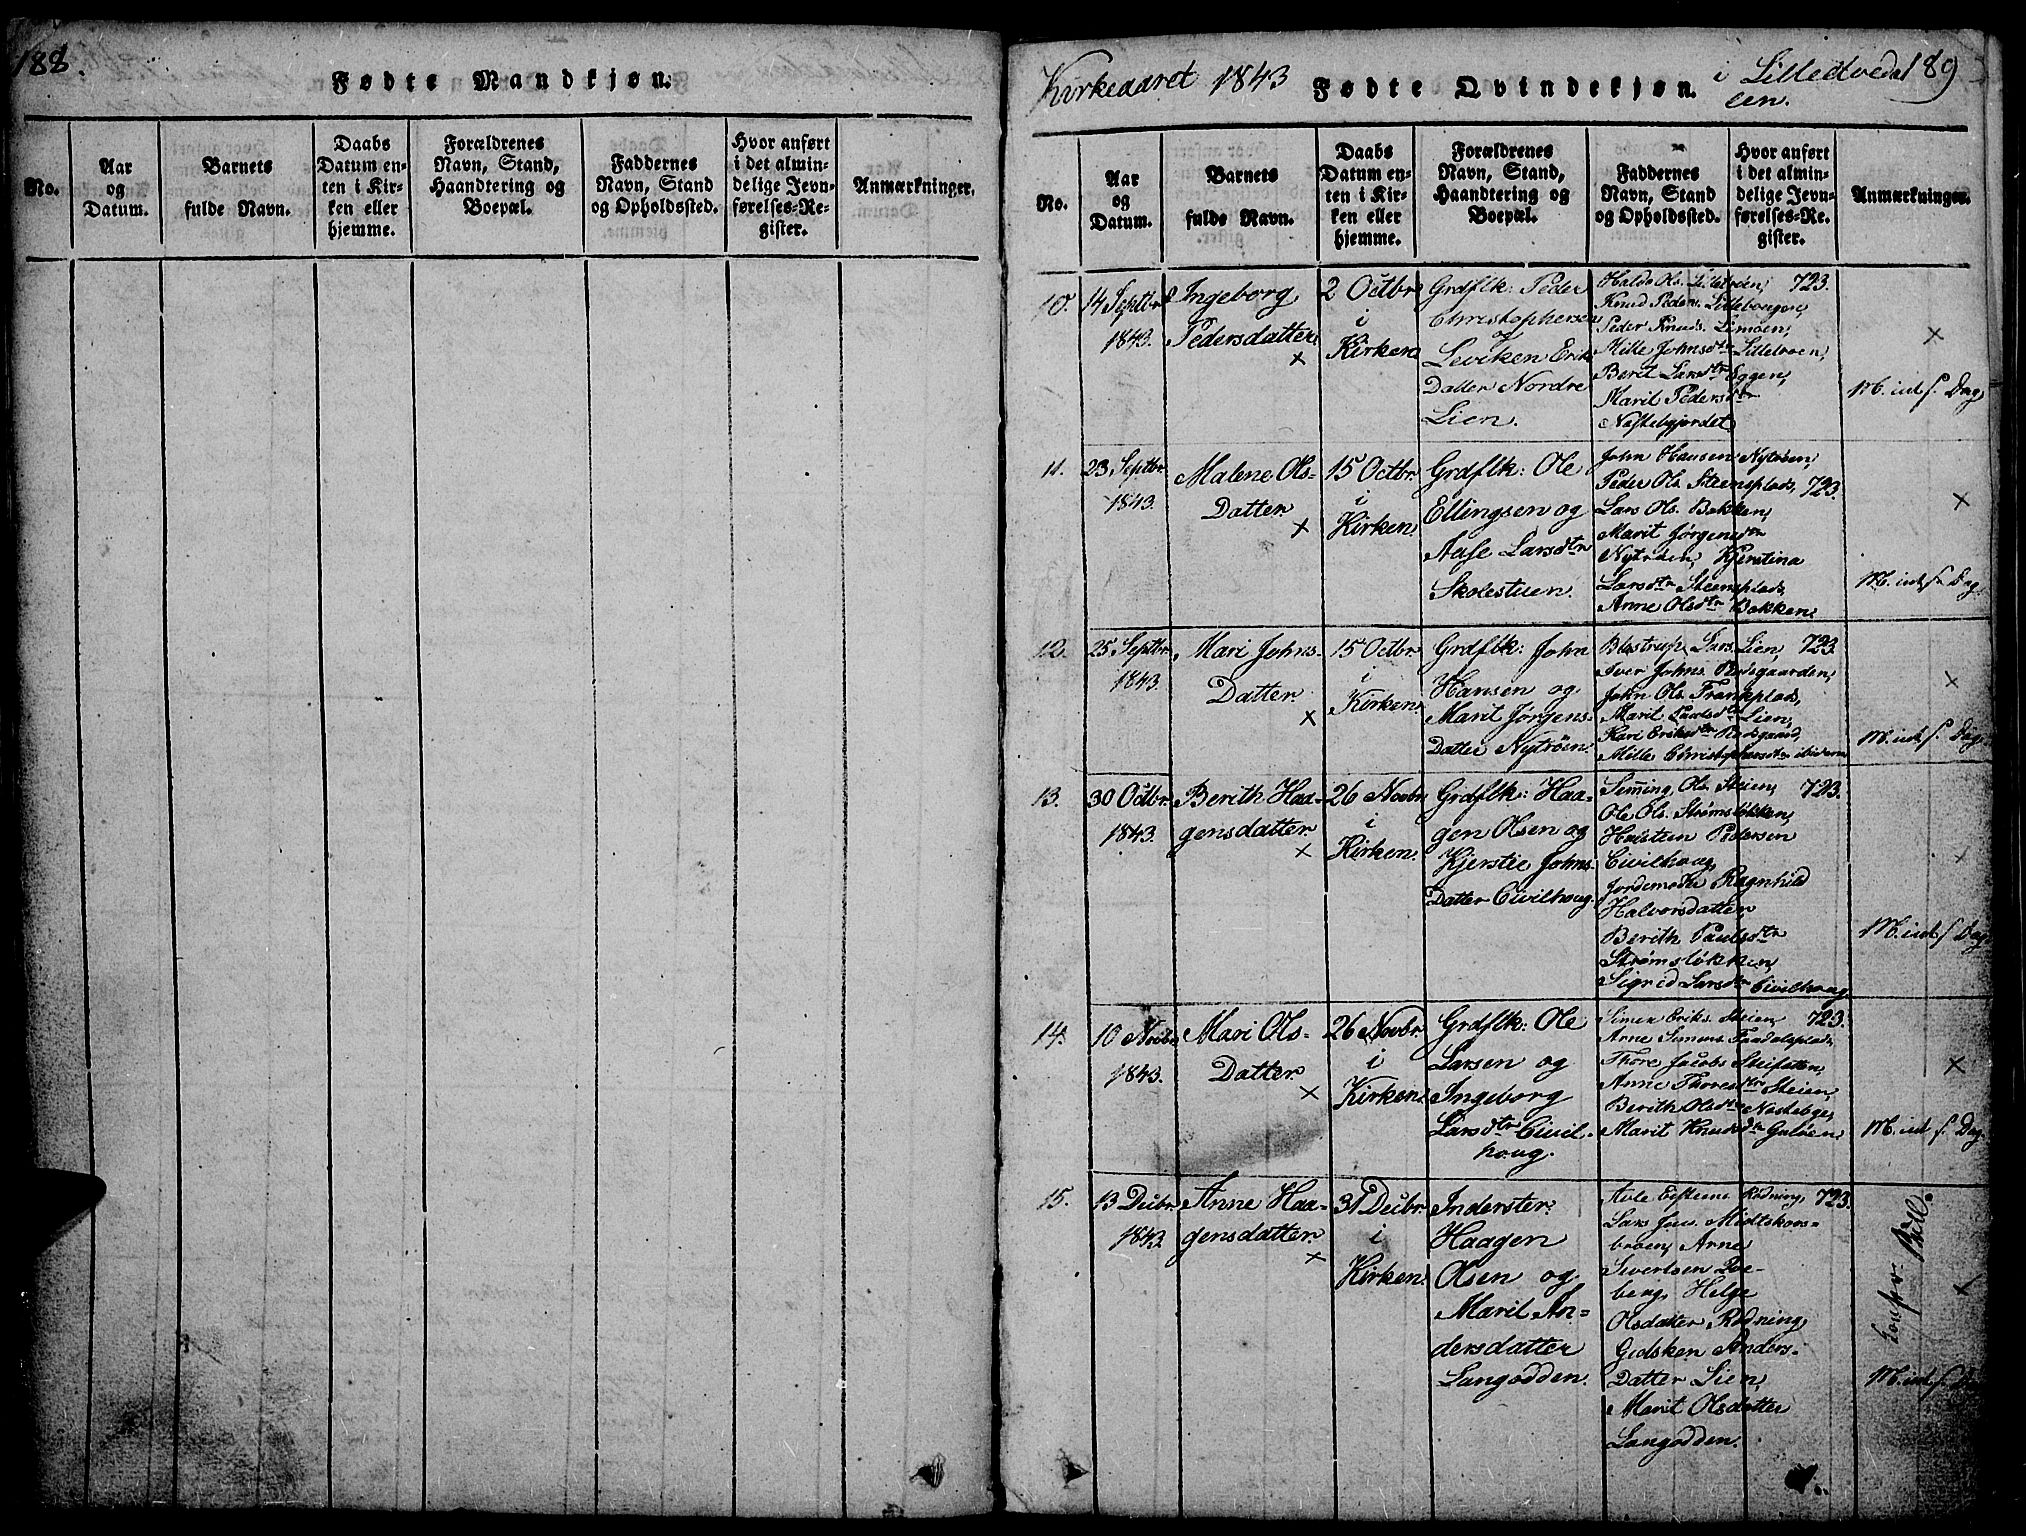 188.
Fødte Mandkjøn.
No.
Aar
og
Datum.
Barnets
fulde Navn.
Daabs
Datum en-
ten i Kir-
ken eller
hjemme.
Forældrenes
Navn, Stand,
Haandtering og
Boepæl.
Faddernes
Navn, Stand
og Opholdssted.
Hvor anført
i det almin-
delige Jevn-
førelses-Re-
gister.
Anmærkninger.
Kirkeaaret 1843 Fødte Qvindekjøn. i Lilleelvedal 189
een.
No.
Aar
og
Datum.
Barnets
fulde Navn.
Daabs
Datum en-
ten i Kir-
ken eller
hjemme.
Forældrenes
Navn, Stand,
Haandtering og
Boepæl.
Faddernes
Navn, Stand
og Opholdssted.
Hvor anført
i det almin-
delige Jevn-
førelses-Re-
gister.
Anmærkninger.
10.
14 Septbr
1843.
Ingeborg
Pedersdatter
×
2 Octbr
i
Kirken
Grdflk: Peder
Christophersen
og
Leviken Eriks
Datter Nordre
Lien.
Halvo Ols. Lilletroen,
Knud Peders.
Peder Knuds. Limoen,
Mille Johnsdtr Lilletroen,
Beret Larsdtr Eggen,
Marit Pedersdtr
723.
×
M. ind s. Dag
11.
23 Septbr
1843.
Malene Ols-
Datter
×
15 Octbr.
i
Kirken
Grdflk: Ole
Ellingsen og
Aase Larsdtr
Skolestuen.
John Hansen Nytrøen,
Peder Ols. Steensplads,
Lars Ols. Bakken,
Marit Jørgensdtr
Nytrøen, Kjerstina
Larsdtr Steensplads,
Anne Olsdtr Bakken,
723.
×
M. ind s. Dag
12.
25 Septbr
1843.
Mari Johns-
Datter
×
15 Octbr
i
Kirken.
Grdflk: John
Hansen og
Marit Jørgens-
Datter Nytrøen.
Lars. Lien,
Iver Johns.
John Ols. Trankplads,
Marit Paulsdtr Lien,
Kari Eriksdtr
Mille Christophersdtr ibidem
723
×
M. ind s. Dag
13.
30 Octbr
1843.
Berith Haa-
gensdatter
×
26 Novbr
i
Kirken.
Grdflk: Haa-
gen Olsen og
Kjerstie Johns-
Datter Civilhoug.
Semming Ols. Steien,
Ole Ols. Strømsløkken,
Halsteen Pedersen
Civilhoug,
Jordemoder Ragnhild
Halvorsdatter
Berith Paulsdtr
Strømsløkken,
Sigrid Larsdtr Civilhoug
723.
×
M. ind s. Dag
14.
10 Novbr
1843.
Mari Ols-
Datter
×
26 Novbr
i
Kirken
Grdflk: Ole
Larsen og
Ingeborg
Larsdtr Civil-
houg.
Simen Eriks. Steien,
Arne Simens. Faadalsplads,
Thore Jacobs.
Anne Thoresdtr Steien,
Berith Olsdtr
Marit Knudsdtr Galøen,
723.
×
M. ind s. Dag
15.
13 Decbr
1843
Anne Haa-
gensdatter
×
31 Decbr
i
Kirken
Inderster:
Haagen
Olsen og
Marit An-
dersdatter
Langodden.
Avle Eistens. Rødning,
Lars Jons. Midtskovs-
broen, Arne
Sivertsen
berg, Helge
Olsdatter Rødning
Gidsken Anders-
Datter Lien,
Marit Olsdatter
Langodden.
723.
Confr. Bill.
×
M. ind s. Dag